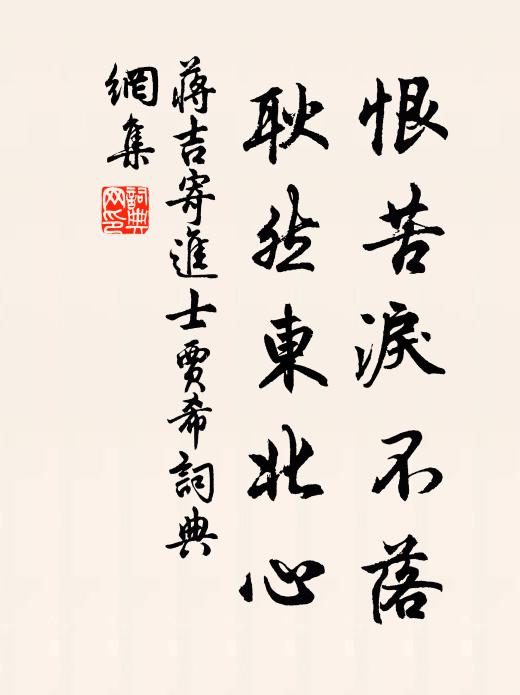 恨苦淚不落
耿然東北心
蔣吉寄進士賈希詞典
網集
詞典网印